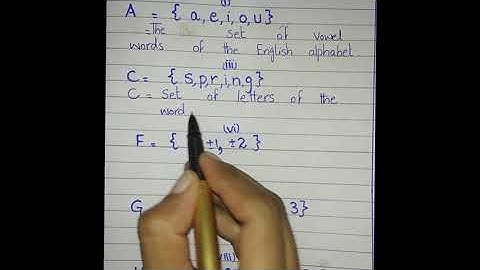 (i)
A = { a, e, i, o, u }
=The set of vowel
words of the English alphabet
(iii)
C = { s,p,r,i,n,g}
C = Set of letters of the
word
(vi)
F = { ±1, ±2 }
G 3}